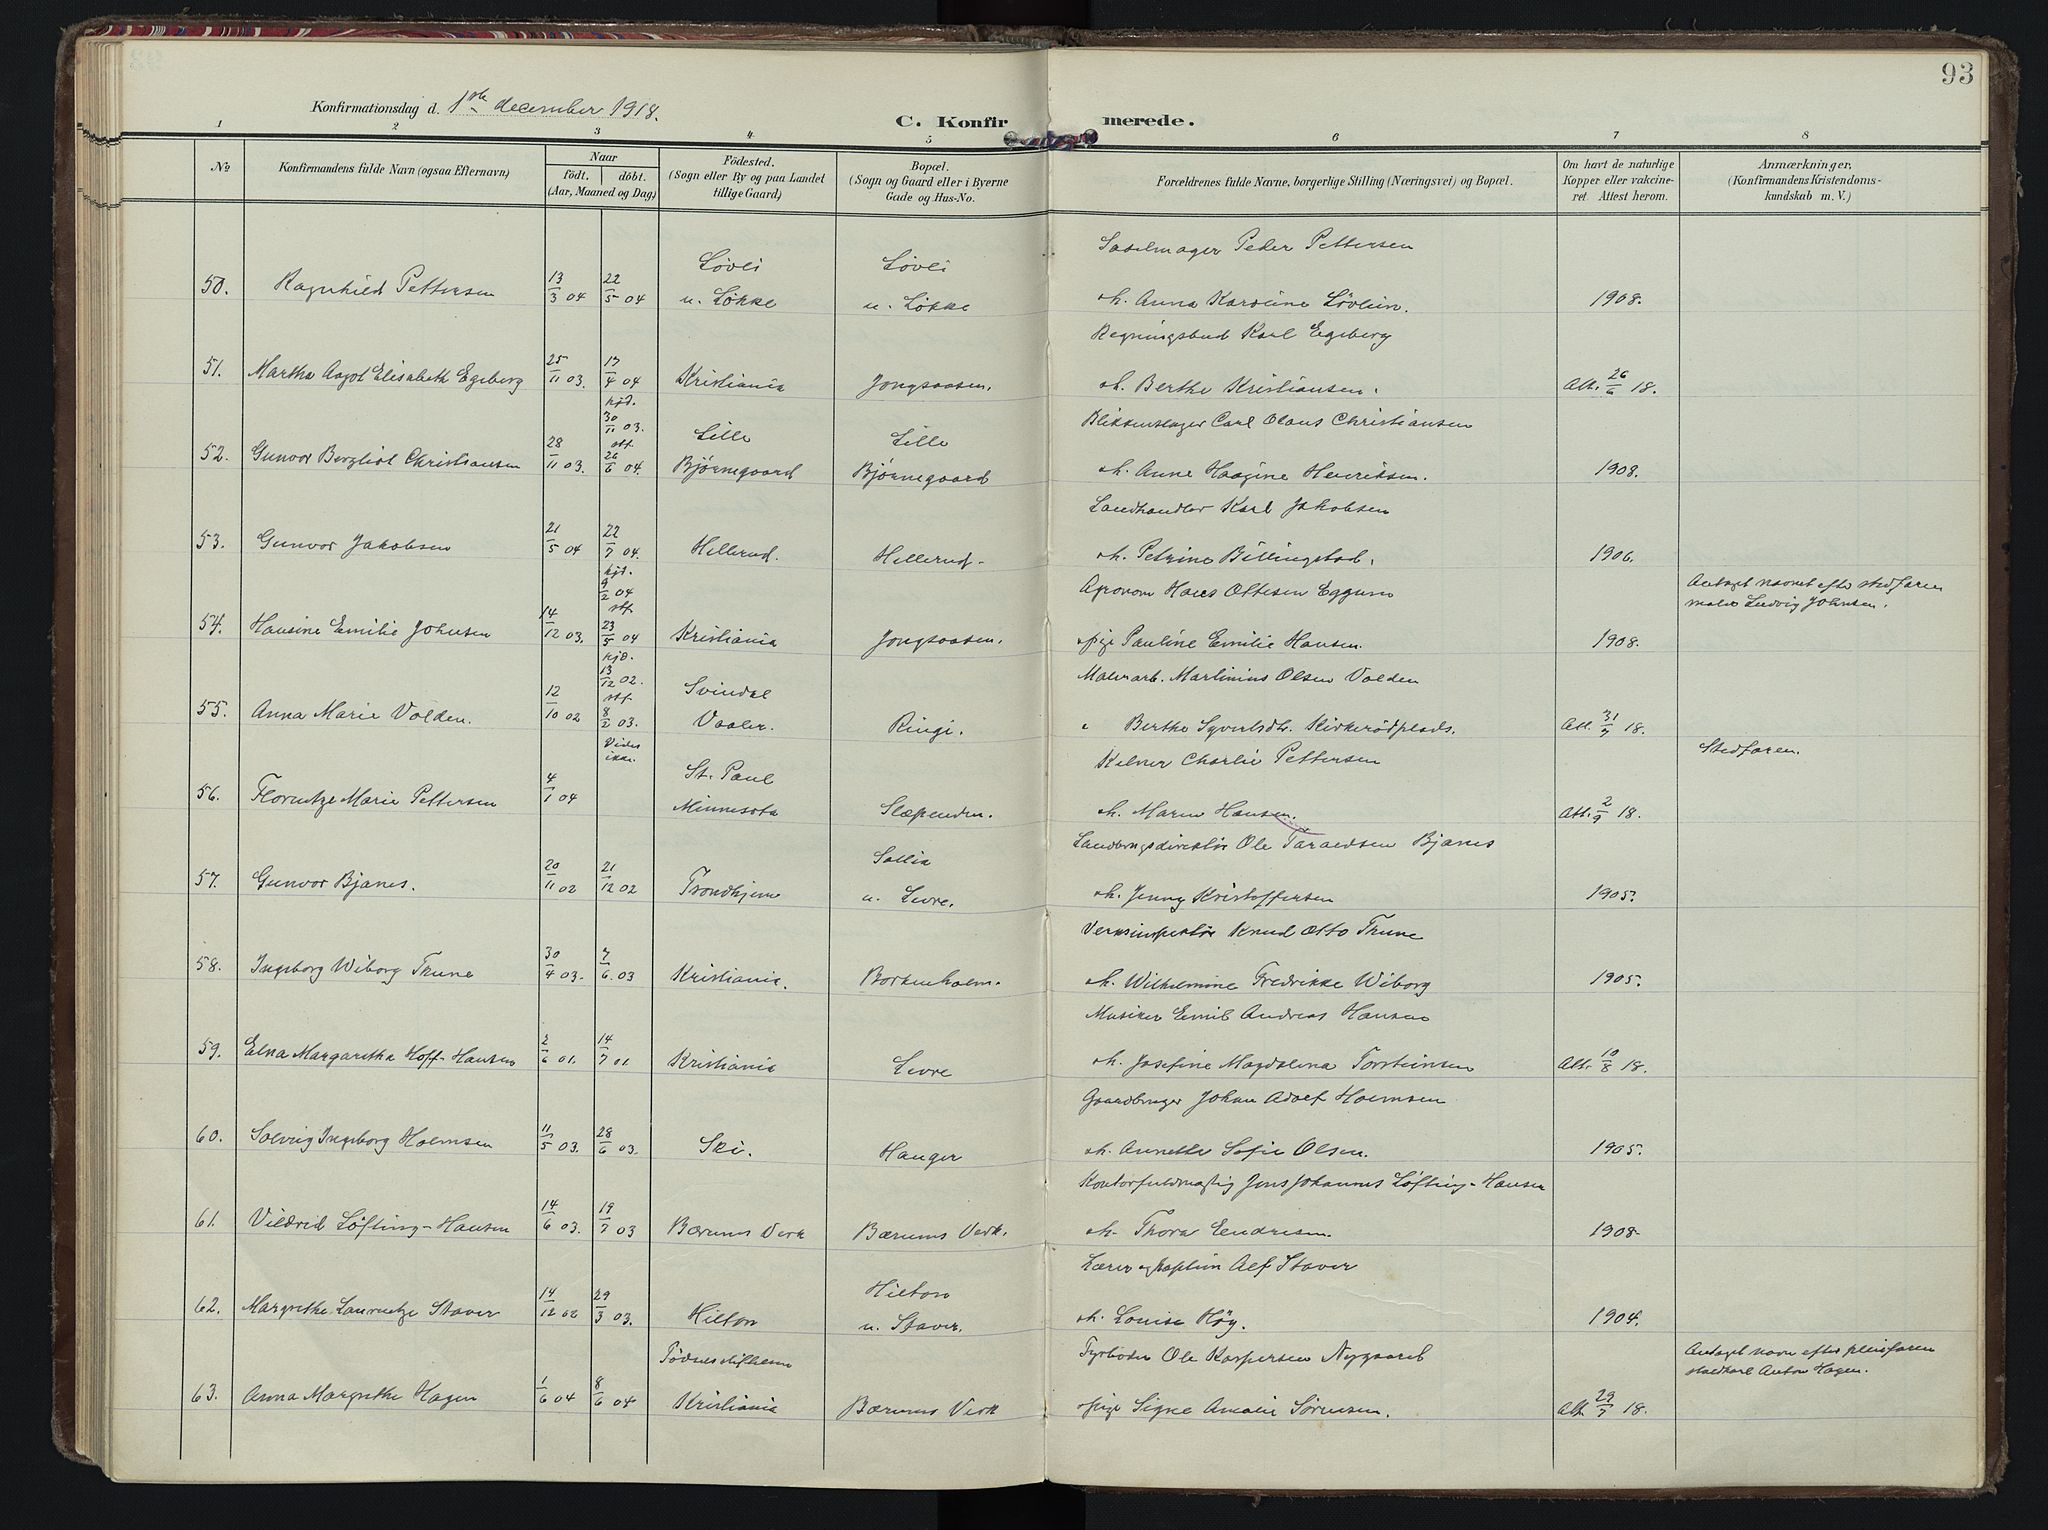 93
Konfirmationsdag d. 1ste december 1918.
C. Konfirmerede.
1 2 3 4 5 6 7 8
No
Konfirmandens fulde Navn (ogsaa Efternavn)
Naar
födt. döbt.
(Aar, Maaned og Dag)
Födested.
(Sogn eller By og paa Landet
tillige Gaard)
Bopæl.
(Sogn og Gaard eller i Byerne
Gade og Hus-No.
Forældrenes fulde Navne, borgerlige Stilling (Næringsvei) og Bopæl.
Om havt de naturlige
Kopper eller vakcine-
ret. Attest herom.
Anmærkninger,
(Konfirmandens Kristendoms-
kundskab m. V.)
Løvli Løvli Sadelmager Peder Pettersen
50. Ragnhild Pettersen 13/3 04 22/5 04 u. Løkke u. Løkke Anna Karoline Løvlien. 1908.
Regningsbud Karl Egeberg
51. Martha Aagot Elisabeth Egeberg 25/11 03. 13/4 04 Kristiania Jongsaasen. Berthe Kristiansen. Att. 26/6 18.
hjd. 30/11 03. Lille Lille Blikkenslager Carl Olaus Christiansen
52. Gunvor Bergliot Christiansen 28/11 03. stf. 26/6 04. Bjørnegaard Bjørnegaard Anne Haagine Henriksen. 1908.
Landhandler Karl Jakobsen
53. Gunvor Jakobsen 21/5 04 22/7 04. Hellerud. Hellerud. Petrine Billingstad. 1906.
hjd. 9/2 04 Agronom Hans Ottesen Eggum Antaget navnet efter stedfaren
maler Ludvig Johnsen.
54. Hansine Emilie Johnsen 14/12 03. stf. 23/5 04 Kristiania Jongsaasen. pige Pauline Emilie Hansen. 1908.
hjd. 13/12 02. Svindal Malerarb. Martinius Olsen Volden
55. Anna Marie Volden. 12/10 02 stf. 8/2 03. Vaaler. Ringi. Berthe Syvertsdtr. Kirkerødplads. Att. 31/7 18.
Vides ikke. St. Paul Kelner Charlie Pettersen Stedfaren.
56. Florentze Marie Pettersen 4/1 04 Minnesota Slæpenden. Maren Hansen. Att. 2/9 18.
Sollia Landbrugsdirektør Ole Taraldsen Bjanes
57. Gunvor Bjanes. 20/11 02 21/12 02 Trondhjem u. Levre. Jenny Kristoffersen 1905.
Verksinspektør Knud Otto Thune
58. Ingeborg Wiborg Thune 30/4 03. 7/6 03 Kristiania. Borkenholm. Wilhelmine Fredrikke Wiborg 1905.
Musiker Emil Andreas Hansen
59. Elna Margaretha Hoff-Hansen 2/6 01. 14/7 01. Kristiania Levre Josefine Magdalena Torsteinsen Att. 10/8 18.
Gaardbruger Johan Adolf Holmsen
60. Solveig Ingeborg Holmsen 11/5 03. 28/6 03. Ski. Hauger Annette Sofie Olsen. 1905.
Kontorfuldmægtig Jens Johannes Løfting-Hansen
61. Vildrid Løfting-Hansen 14/6 03. 19/7 03 Bærums Verk Bærums Verk. Thora Endresen. 1908.
Hilton Lærer og kaptein Alf Staver
62. Margrethe Laurentze Staver 14/12 02 29/3 03. Hilton u. Staver. Louise Høy. 1904.
Fødselsstiftelsen Fyrbøder Ole Kaspersen Nygaard Antaget navn efter pleiefaren
staldkarl Anton Hagen.
63. Anna Margrethe Hagen 1/6 04 8/6 04 Kristiania Bærums Verk pige Signe Amalie Sørensen. Att. 29/7 18.